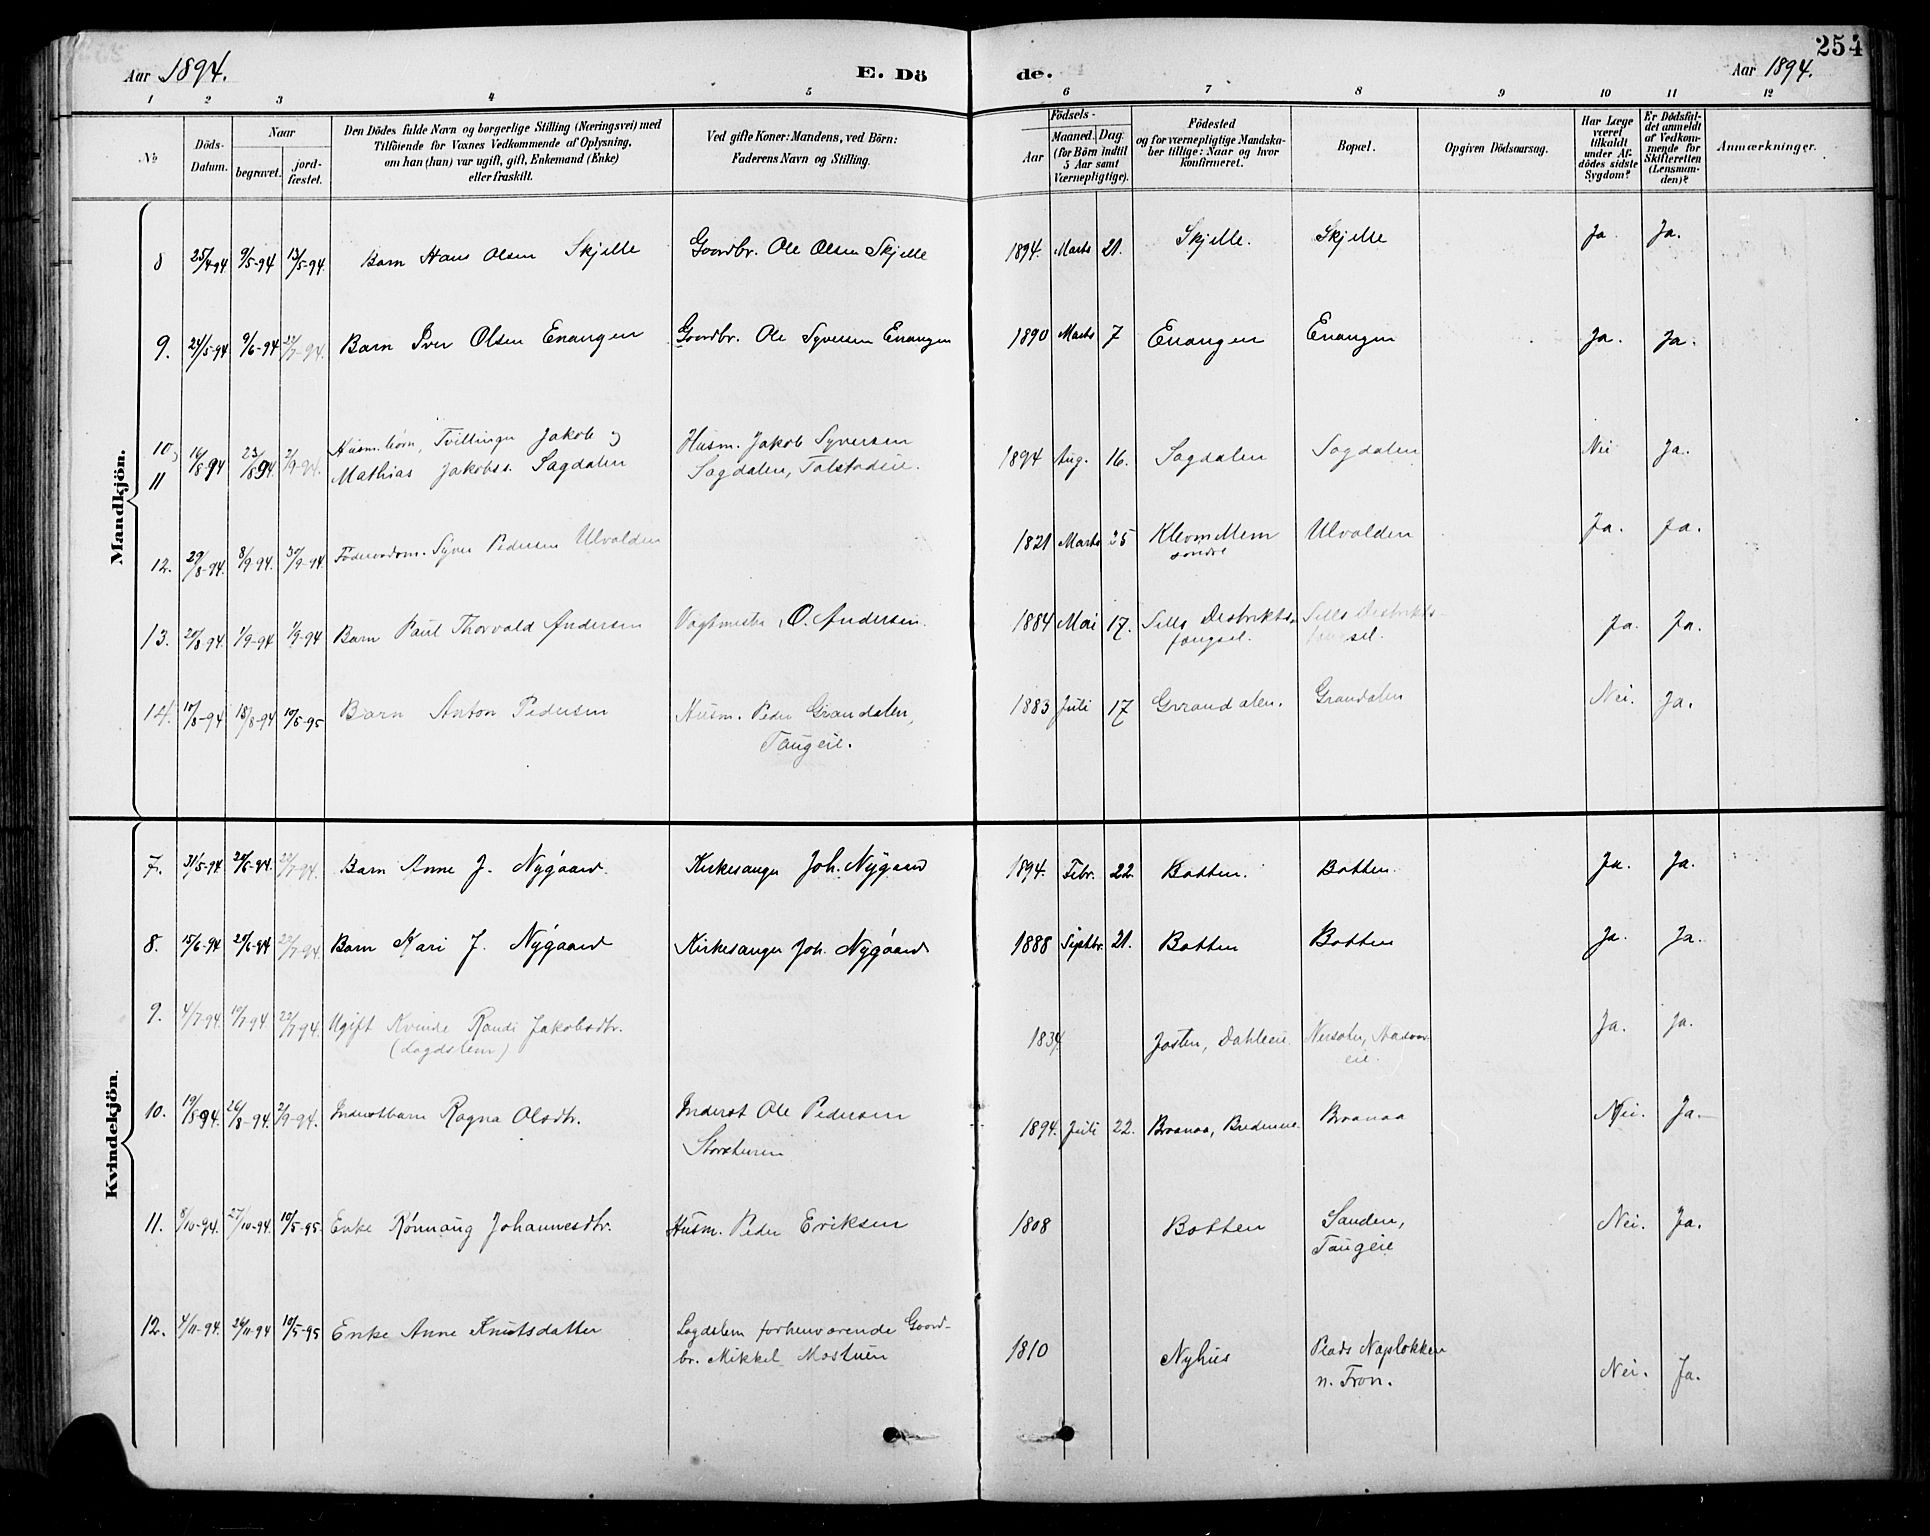 254
Aar 1894.
E. Dö de.
Aar 1894.
1 2 3 4 5 6 7 8 9 10 11 12
№
Döds-Datum.
Naar
begravet.
jord-fæstet.
Den Dödes fulde Navn og borgerlige Stilling (Næringsvei) med
Tilföiende for Voxnes Vedkommende af Oplysning,
om han (hun) var ugift, gift, Enkemand (Enke)
eller fraskilt.
Ved gifte Koner: Mandens, ved Börn:
Faderens Navn og Stilling.
Födsels-
Aar
Maaned. Dag.
(for Börn indtil
5 Aar samt
Værnepligtige).
Födested
og for værnepligtige Mandska-
ber tillige: Naar og hvor
konfirmeret.
Bopæl.
Opgiven Dödsaarsag.
Har Læge
været
tilkaldt
under Af-
dödes sidste
Sygdom?
Er Dödsfal-
det anmeldt
af Vedkom-
mende for
Skifteretten
(Lensman-
den)?
Anmærkninger.
Mandkjön.
8 25/4-94 9/5-94 13/5-94. Barn Hans Olsen Skjelle Gaardbr. Ole Olsen Skjelle 1894. Marts 21. Skjelle. Skjelle Ja. Ja.
9. 24/5-94 9/6-94 22/7-94. Barn Iver Olsen Enangen Gaardbr. Ole Syversen Enangen 1890 Marts 7 Enangen Enangen Ja. Ja.
10, 16/8-94 23/8-94. 2/9-94. Husm. börn, Tvillinger Jakob og Husm. Jakob Syversen 1894 Aug. 16. Sagdalen Sagdalen Nei Ja.
11 Mathias Jakobss. Sagdalen Sagdalen, Tolstadeie.
12. 29/8-94. 8/9-94. 30/9-94 Föderaadsm. Syver Pedersen Ulvolden 1821 Marts 25 Kleivmellem Ulvolden Ja. Ja.
söndre
13. 20/8-94. 1/9-94 1/9-94 Barn Paul Thorvald Andersen Vagtmester O. Andersen. 1884 Mai 17. Sells Destrikts- Sells Destrikts- Ja. Ja.
fængsel. fængsel.
14. 10/8-94 18/8-94 10/5-95 Barn Anton Pedersen Husm. Peder Grandalen, 1883 Juli 17 Grandalen. Grandalen Nei. Ja.
Taugeie.
Kvindekjön.
7. 31/5-94 Barn Anne J. Nygaard. Kirkesanger Joh. Nygaard 1894. Febr. 22. Botten. Botten. Ja. Ja.
8. 15/6-94 Barn Kari J. Nygaard Kirkesanger Joh. Nygaard 1888 Septbr. 21. Botten Botten Ja. Ja.
9. 4/7-94. 10/7-94. 22/7-94. Ugift Kvinde Randi Jakobsdtr. 1834. Josten, Dahleie. Ja. Ja.
(Lægdslem) eie.
10. 19/8-94 26/8-94. 2/9-94. Inderstbarn Ragna Olsdtr. Inderst Ole Pedersen 1894. Juli 22. Braanaa, Braanaa Nei. Ja.
11. 8/10-94. 27/10-94. 10/5-95. Enke Rönnaug Johannesdtr. Husm. Peder Eriksen 1808 Botten Sanden, Nei. Ja.
Taugeie
12. 4/11-94. 26/11-94 10/5-95 Enke Anne Knutsdatter Lægdslem forhenværende Gaard- 1810 Nyhus Plads Nei. Ja.
br. Mikkel Mostuen n. Fron.